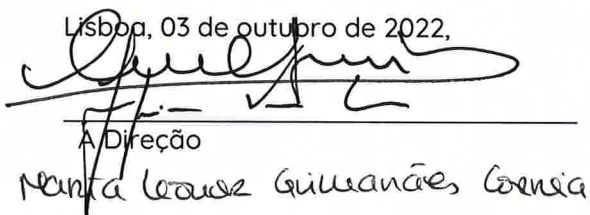 Lisboa, 03 de outubro de 2022,
A Direção
Maria Leonor Guimarães Correia